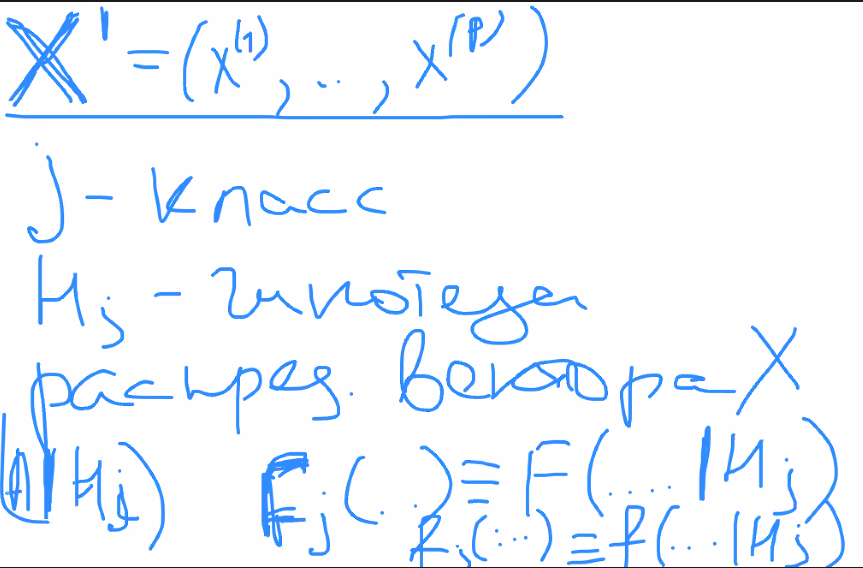 X' = (x^(1), ..., x^(p))
j - класс
H_j - гипотеза
распред. вектора X
|H_j) F_j(...) ≡ F(....|H_j)
f_j(...) ≡ f(...|H_j)